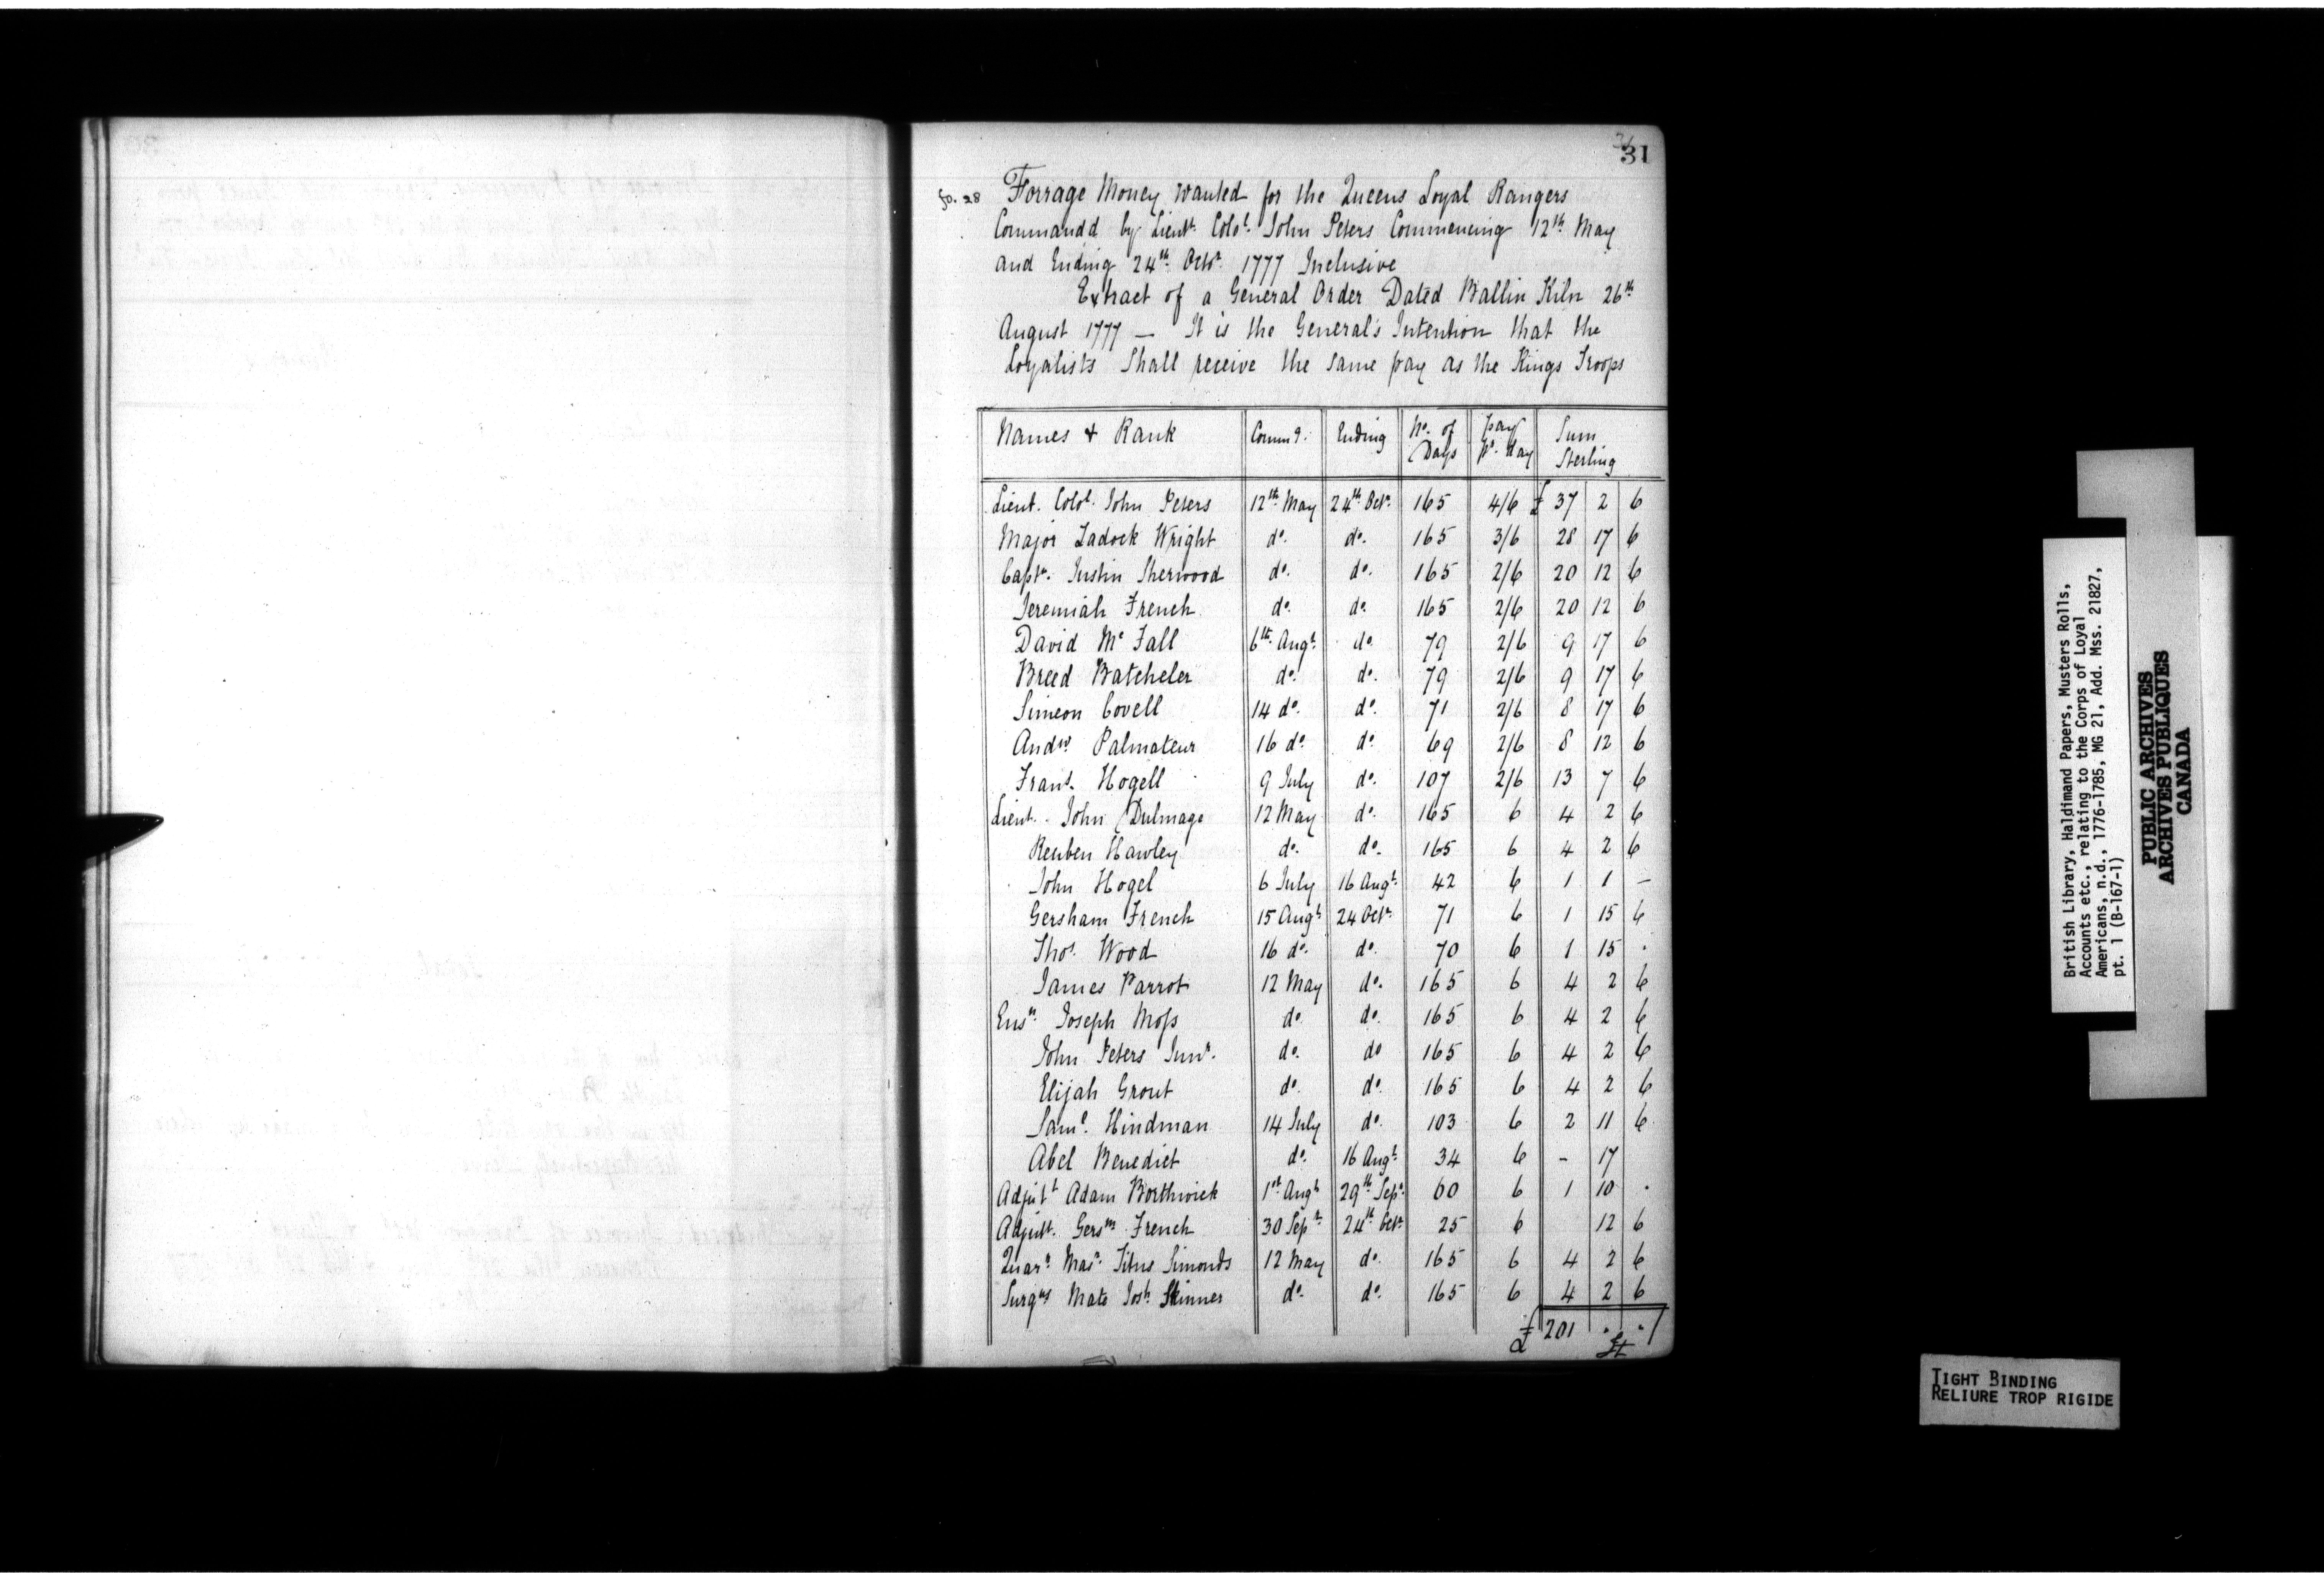 31
fo. 28 Forrage Money wanted for the Queens Loyal Rangers
Commandd by Lieut. Colol. John Peters Commencing 12th May
and Ending 24th Octr. 1777 Inclusive
Extract of a General Order Dated Ballin Kiln 26th
August 1777 — It is the General's Intention that the
Loyalists Shall receive the same pay as the Kings Troops
Names + Rank | Commg. | Ending | No. of Days | pay pr. day | Sum Sterling
Lieut. Colol. John Peters | 12th May | 24th Octr. | 165 | 4/6 | £ 37 | 2 | 6
Major Zadock Wright | do. | do. | 165 | 3/6 | 28 | 17 | 6
Captn. Justin Sherwood | do. | do. | 165 | 2/6 | 20 | 12 | 6
Jeremiah French | do. | do. | 165 | 2/6 | 20 | 12 | 6
David Mc Fall | 6th Augt. | do. | 79 | 2/6 | 9 | 17 | 6
Breed Batcheler | do. | do. | 79 | 2/6 | 9 | 17 | 6
Simeon Covell | 14 do. | do. | 71 | 2/6 | 8 | 17 | 6
Andw. Palmateur | 16 do. | do. | 69 | 2/6 | 8 | 12 | 6
Frans. Hogell | 9 July | do. | 107 | 2/6 | 13 | 7 | 6
Lieut. John Dulmage | 12 May | do. | 165 | 6 | 4 | 2 | 6
Reuben Hawley | do. | do. | 165 | 6 | 4 | 2 | 6
John Hogel | 6 July | 16 Augt. | 42 | 6 | 1 | 1 | —
Gersham French | 15 Augt. | 24 Octr. | 71 | 6 | 1 | 15 | 6
Thos. Wood | 16 do. | do. | 70 | 6 | 1 | 15 | .
James Parrot | 12 May | do. | 165 | 6 | 4 | 2 | 6
Ensn. Joseph Moss | do. | do. | 165 | 6 | 4 | 2 | 6
John Peters Junr. | do. | do | 165 | 6 | 4 | 2 | 6
Elijah Grout | do. | do. | 165 | 6 | 4 | 2 | 6
Saml. Hindman | 14 July | do. | 103 | 6 | 2 | 11 | 6
Abel Benedict | do. | 16 Augt. | 34 | 6 | - | 17
Adjutt Adam Borthwick | 1st Augt | 29th Sepr. | 60 | 6 | 1 | 10 | .
Adjutt. Gersm French | 30 Sept. | 24th Octr. | 25 | 6 | | 12 | 6
Quarr. Masr. Titus Simonds | 12 May | do. | 165 | 6 | 4 | 2 | 6
Surgns Mate Josh. Skinner | do. | do. | 165 | 6 | 4 | 2 | 6
£ 201 . . St
British Library, Haldimand Papers, Musters Rolls,
Accounts etc., relating to the Corps of Loyal
Americans, n.d., 1776-1785, MG 21, Add. Mss. 21827,
pt. 1 (B-167-1)
PUBLIC ARCHIVES
ARCHIVES PUBLIQUES
CANADA
TIGHT BINDING
RELIURE TROP RIGIDE